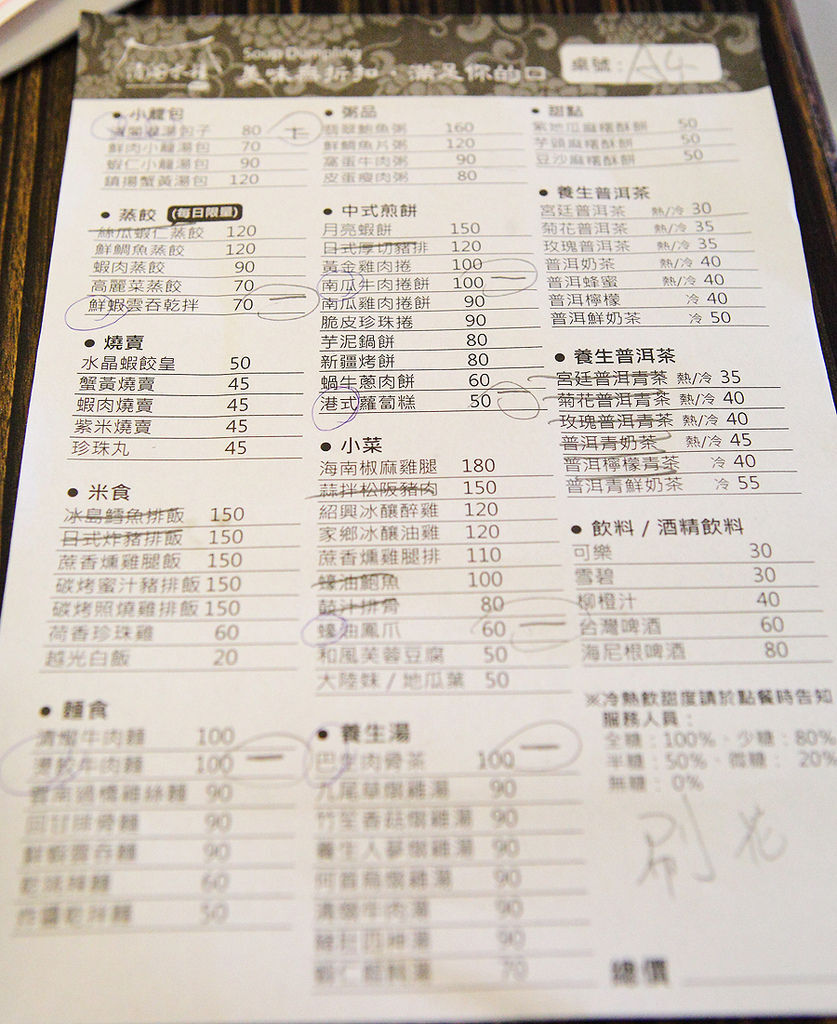 Soup Dumpling
美味無折扣·滿足你的口
桌號：A4
● 小籠包
湯包子 80
鮮肉小籠湯包 70
蝦仁小籠湯包 90
鎮揚蟹黃湯包 120
● 蒸餃 (每日限量)
絲瓜蝦仁蒸餃 120
鮮鯛魚蒸餃 120
蝦肉蒸餃 90
高麗菜蒸餃 70
鮮蝦雲吞乾拌 70 一
● 燒賣
水晶蝦餃皇 50
蟹黃燒賣 45
蝦肉燒賣 45
紫米燒賣 45
珍珠丸 45
● 米食
冰島鱈魚排飯 150
日式炸豬排飯 150
蔗香燻雞腿飯 150
碳烤蜜汁豬排飯 150
碳烤照燒雞排飯 150
荷香珍珠雞 60
越光白飯 20
● 麵食
清燉牛肉麵 100
牛肉麵 100 一
雲南過橋雞絲麵 90
回甘排骨麵 90
鮮蝦雲吞麵 90
麵 60
炸醬乾拌麵 50
● 粥品
翡翠鮑魚粥 160
鮮鯛魚片粥 120
窩蛋牛肉粥 90
皮蛋瘦肉粥 80
● 中式煎餅
月亮蝦餅 150
日式厚切豬排 120
黃金雞肉捲 100
南瓜牛肉捲餅 100 一
南瓜雞肉捲餅 90
脆皮珍珠捲 90
芋泥鍋餅 80
新疆烤餅 80
蝸牛蔥肉餅 60
港式蘿蔔糕 50
● 小菜
海南椒麻雞腿 180
蒜拌松阪豬肉 150
紹興冰釀醉雞 120
家鄉冰釀油雞 120
蔗香燻雞腿排 110
蠔油鮑魚 100
豉汁排骨 80
蠔油鳳爪 60 一
和風芙蓉豆腐 50
大陸妹 / 地瓜葉 50
● 養生湯
巴生肉骨茶 100 一
九尾草燉雞湯 90
竹笙香菇燉雞湯 90
養生人蔘燉雞湯 90
何首烏燉雞湯 90
清燉牛肉湯 90
四神湯 90
蝦仁餛飩湯 70
● 甜點
紫地瓜麻糬酥餅 50
芋頭麻糬酥餅 50
豆沙麻糬酥餅 50
● 養生普洱茶
宮廷普洱茶 熱/冷 30
菊花普洱茶 熱/冷 35
玫瑰普洱茶 熱/冷 35
普洱奶茶 熱/冷 40
普洱蜂蜜 熱/冷 40
普洱檸檬 冷 40
普洱鮮奶茶 冷 50
● 養生普洱茶
宮廷普洱青茶 熱/冷 35
菊花普洱青茶 熱/冷 40
玫瑰普洱青茶 熱/冷 40
普洱青奶茶 熱/冷 45
普洱檸檬青茶 冷 40
普洱青鮮奶茶 冷 55
● 飲料 / 酒精飲料
可樂 30
雪碧 30
柳橙汁 40
台灣啤酒 60
海尼根啤酒 80
※冷熱飲甜度請於點餐時告知
服務人員：
全糖：100%、少糖：80%
半糖：50%、微糖： 20%
無糖：0%
刷
總價